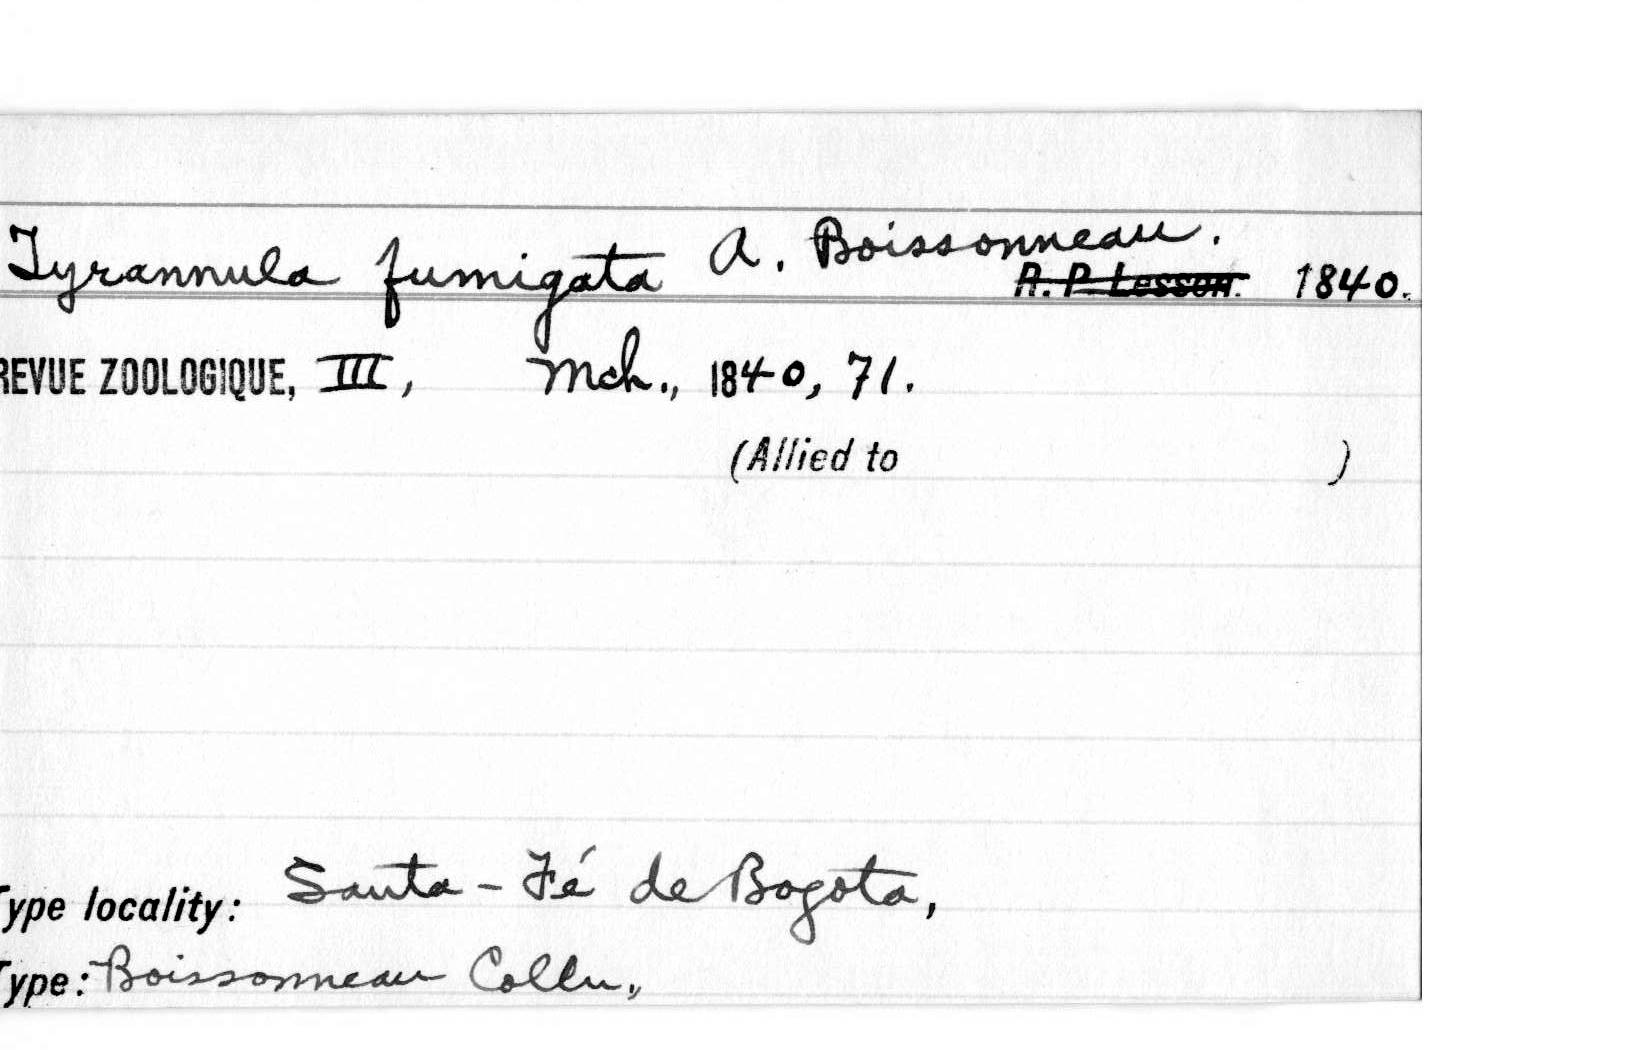 Tyrannula fumigata A. Boissonneau.
A. P. Lesson. 1840.
REVUE ZOOLOGIQUE, III, Mch., 1840, 71.
(Allied to )
Type locality: Santa-Fé de Bogota,
Type: Boissonneau Colln.,